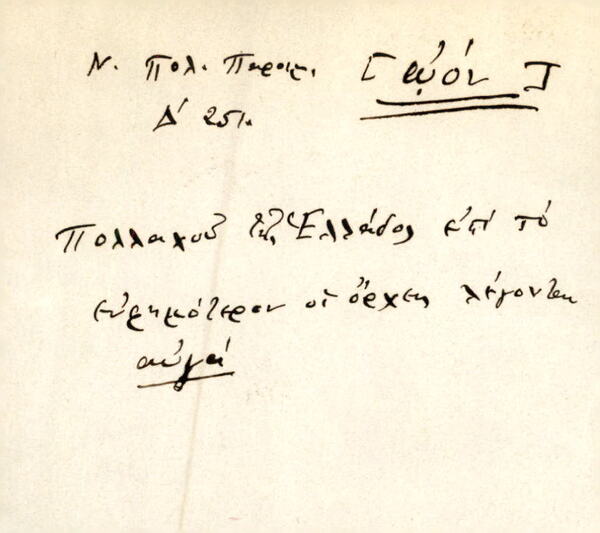 Ν. Πολ. Παροιμ. [ᾠόν]
Δ' 251.
Πολλαχοῦ τῆς Ἑλλάδος ἐπὶ τὸ
εὐφημότερον οἱ ὄρχεις λέγονται
αὐγά